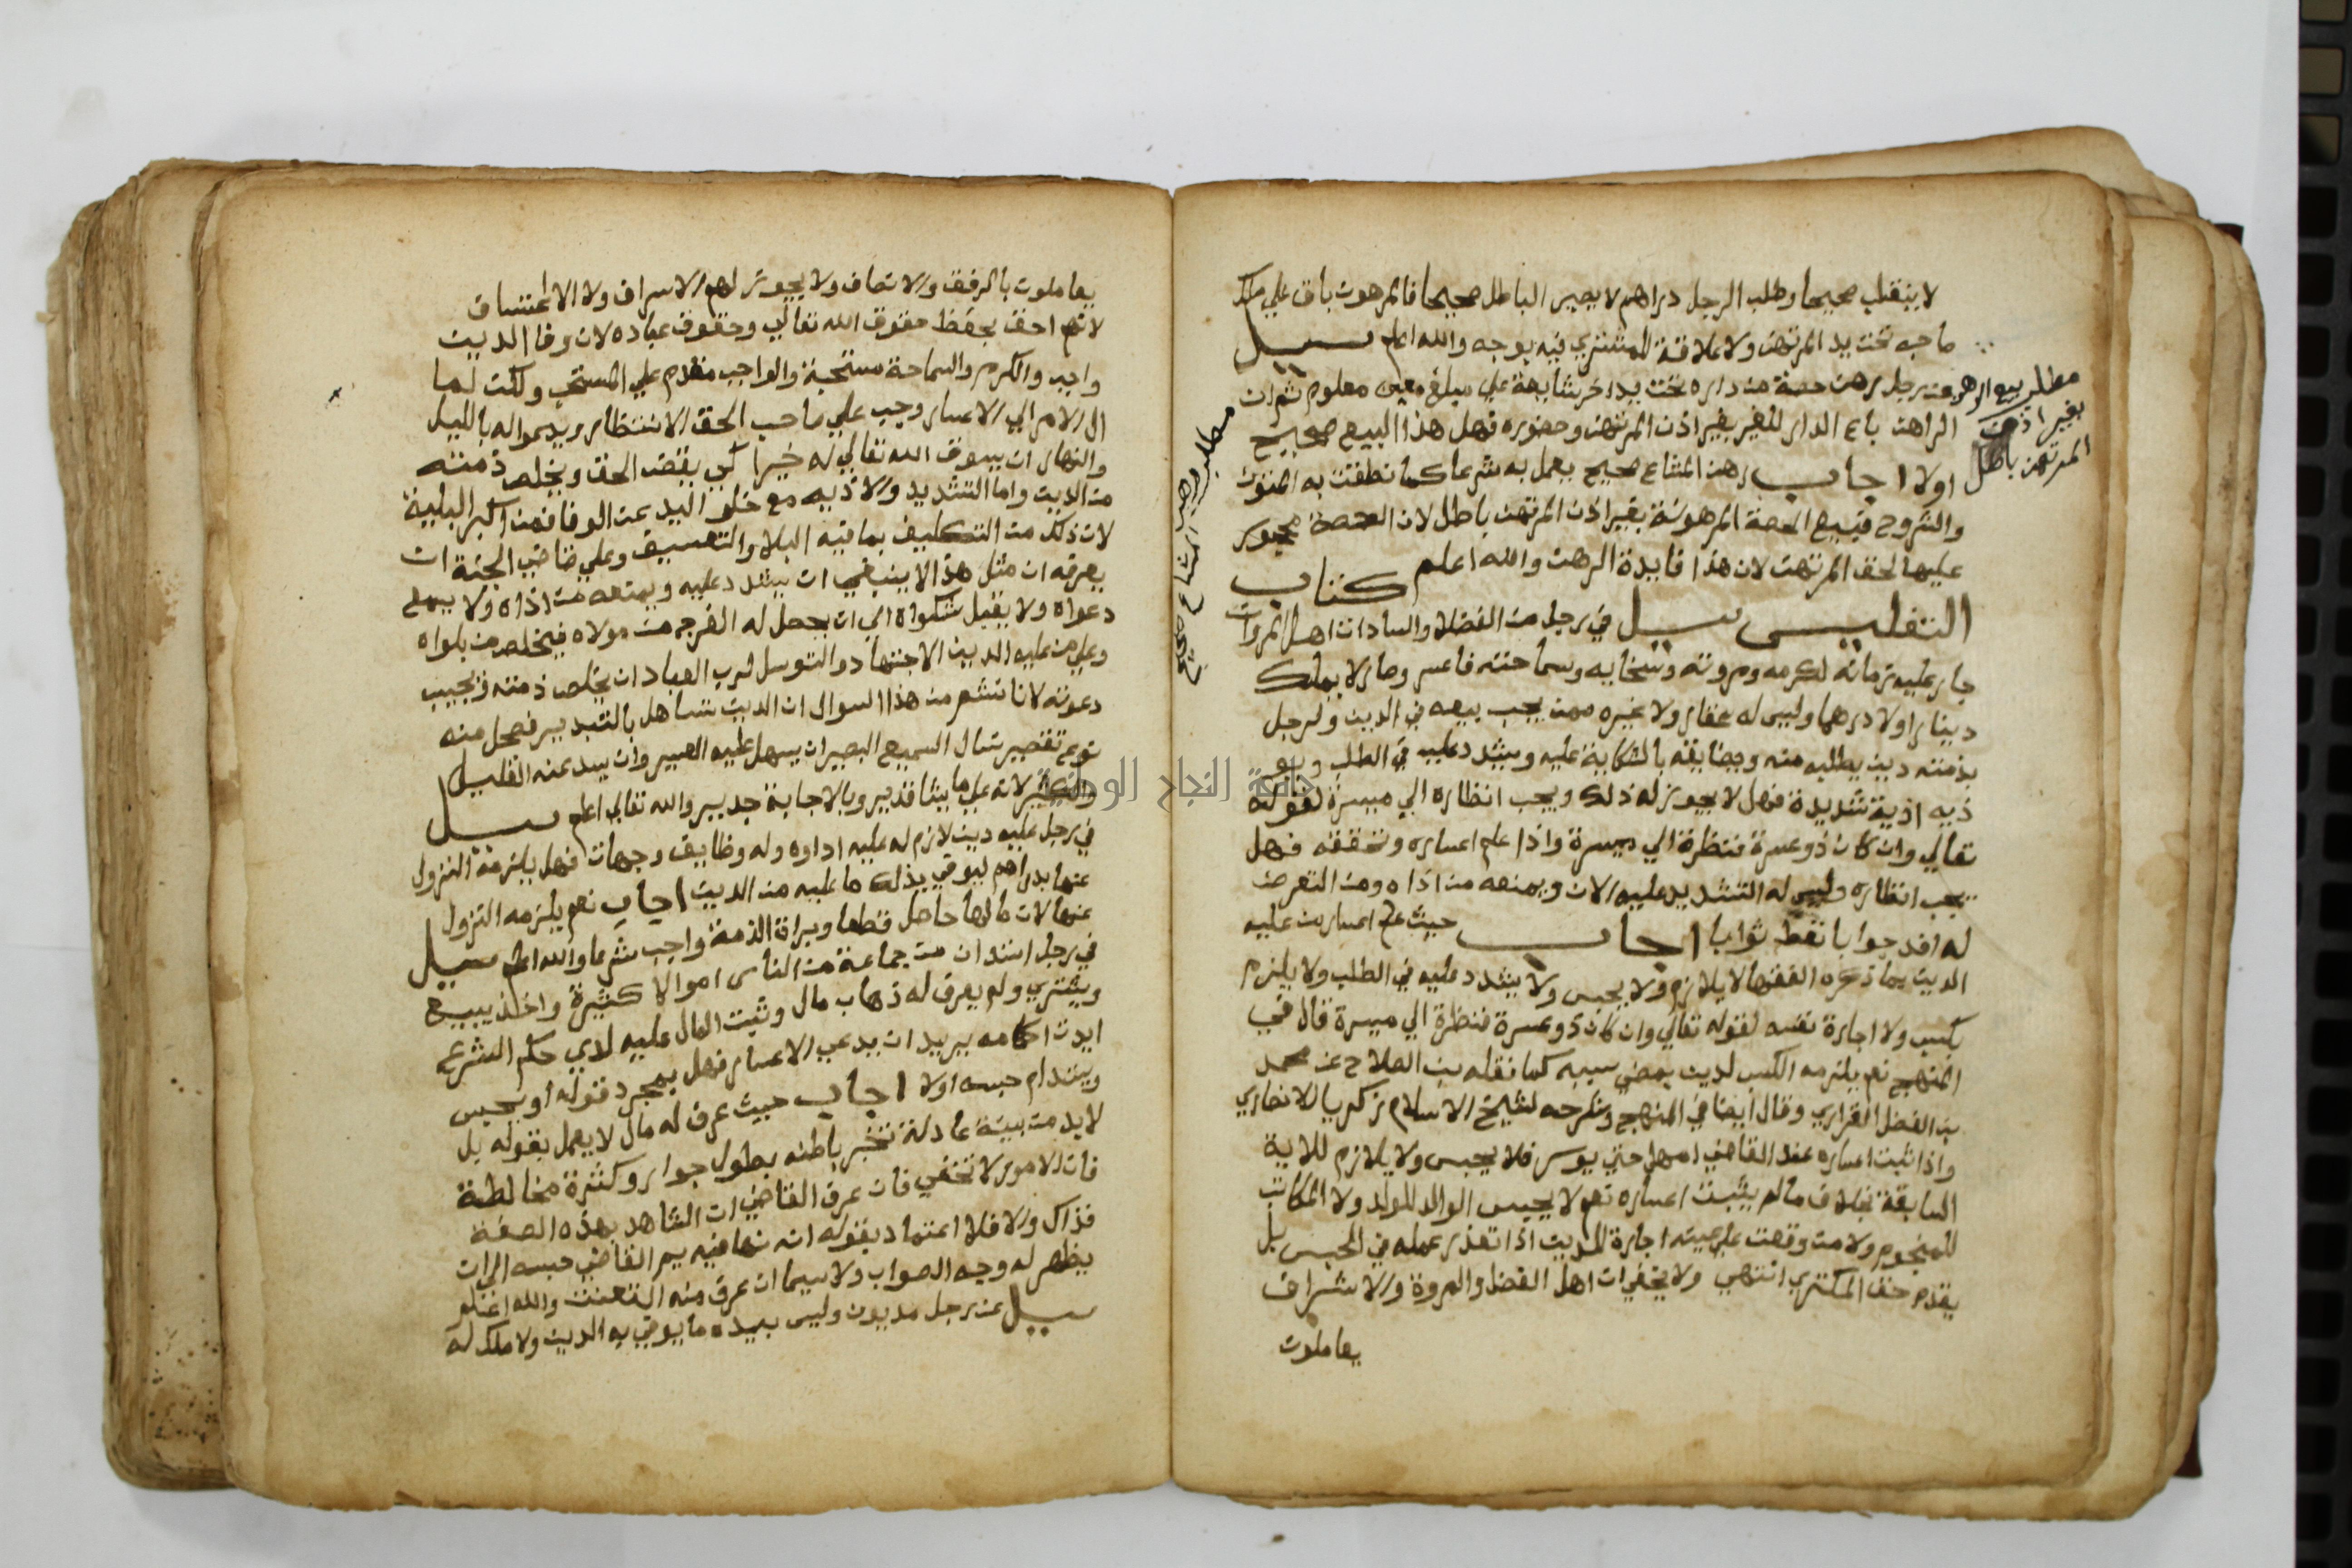 لا ينقلب صحيحا وطلب الرجل دراهم لا يصير الباطل صحيحا فالمرهون باق علي ملك
صاحبه تحت يد المرتهن ولا علاقة للمشتري فيه بوجه والله اعلم سيل
عن رجل رهن حصة من داره تحت يد اخر شايعة علي مبلغ معين معلوم ثم ان
الراهن باع الدار للغير بغير اذن المرتهن وحضوره فهل هذا البيع صحيح
اولا اجاب رهن المشاع صحيح يعمل به شرعا كما نطقت به المتون
والشروح فبيع الحصة المرهونة بغير اذن المرتهن باطل لان الحصة محجور
عليها لحق المرتهن لان هذا فايدة الرهن والله اعلم كتاب
التفليس سيل في رجل من الفضلا والسادات اهل المروات
جار عليه زمانه لكرمه ومروته وسخايه وسماحته فاعسر وصار لا يملك
دينارا ولا درهما وليس له عقار ولا غيره ممن يجب بيعه في الدين ولرجل
بذمته دين يطلبه منه ويضايقه بالشكاية عليه ويشدد عليه في الطلب ويو
ذيه اذية شديدة فهل لا يجوز له ذلك ويجب انظاره الي ميسرة لقوله
تعالي وان كان ذو عسرة فنظرة الي ميسرة واذا علم اعساره وتحققه فهل
يجب انظاره وليس له التشديد عليه الان ويمنعه من اذاه ومن التعرض
له افد جوابا تعط ثوابا اجاب حيث علم اعسار من عليه
الدين بما ذكره الفقها لا يلازم ولا يحبس ولا يشدد عليه في الطلب ولا يلزم
بكسب ولا اجارة نفسه لقوله تعالي وان كان ذو عسرة فنظرة الي ميسرة قال في
المنهج نعم يلزمه الكسب لدين بمضي سببه كما نقله بن الصلاح عن محمد
بن الفضل الفراري وقال ايضا في المنهج وشرحه لشيخ الاسلام زكريا الانصاري
واذا ثبت اعساره عند القاضي امهل حتي يوسر فلا يحبس ولا يلازم للاية
السابقة بخلاف ما لم يثبت اعساره نعم لا يحبس الوالد للولد ولا المكاتب
للنجوم ولا من وقعت علي عينه اجارة المدين اذا تعذر عمله في الحبس بل
يقدم حق المكتري انتهي ولا يخفي ان اهل الفضل والمروة والاشراف
يعاملون
مطلب بيع المرهون
بغير اذن
المرتهن باطل
مطلب رهن المشاع صحيح
يعاملون بالرفق والانصاف ولا يجوز لهم الاسراف ولا الاعتساف
لانهم احق بحفظ حقوق الله تعالي وحقوق عباده لان وفا الدين
واجب والكرم والسماحة مستحبة والواجب مقدم علي المستحب ولكن لما
ال الامر الي الاعسار وجب علي صاحب الحق الانتظار ويدعوا له بالليل
والنهار ان يسوق الله تعالي له خيرا كي يقضي الحق ويخلص ذمته
من الدين واما التشديد والاذيه مع خلو اليد عن الوفا فمن اكبر البلية
لان ذلك من التكليف بما فيه البلا والتعسيف وعلي قاضي الجنة ان
يعرفه ان مثل هذا لا ينبغي ان يشدد عليه ويمنعه من اذاه ولا يسمع
دعواه ولا يقبل شكواه الي ان يحصل له الفرج من مولاه فيخلص من بلواه
وعلي من عليه الدين الاجتهاد والتوسل لرب العباد ان يخلص ذمته ويجيب
دعوته لانا نشعر من هذا السوال ان المدين تساهل بالتبذير فحصل منه
نوع تقصير نسال السميع البصير ان يسهل عليه العسير وان يسد عنه القليل
والكثير لانه علي ما يشا قدير وبالاجابة جدير والله تعالي اعلم سيل
في رجل عليه دين لازم له عليه اداوه وله وظايف وجهات فهل يلزمه النزول
عنها بدراهم ليوفي بذلك ما عليه من الدين اجاب نعم يلزمه النزول
عنها لان مالها حاصل قطعا وبراة الذمة واجب شرعا والله اعلم سيل
في رجل استدان من جماعة من الناس اموالا كثيرة واخذ يبيع
ويشتري ولم يعرف له ذهاب مال وثبت المال عليه لدي حكم الشرع
يريد ان يدعي الاعسار فهل بمجرد قوله او يحبس
ويستدام حبسه اولا اجاب حيث عرف له مال لا يعمل بقوله بل
لابد من بينة عادلة تخبر باطنه بطول جوار وكثرة مخالطة
فان الامور لا تخفي فان عرف القاضي ان الشاهد بهذه الصفة
فذاك والا فلا اعتماد بقوله انه نهافيه يم القاضي حبسه الي ان
يظهر له وجه الصواب ولا سيما ان عرف منه التعنت والله اعلم
سيل عن رجل مديون وليس بيده ما يوفي به الدين ولا ملك له
جامعة النجاح الوطنية